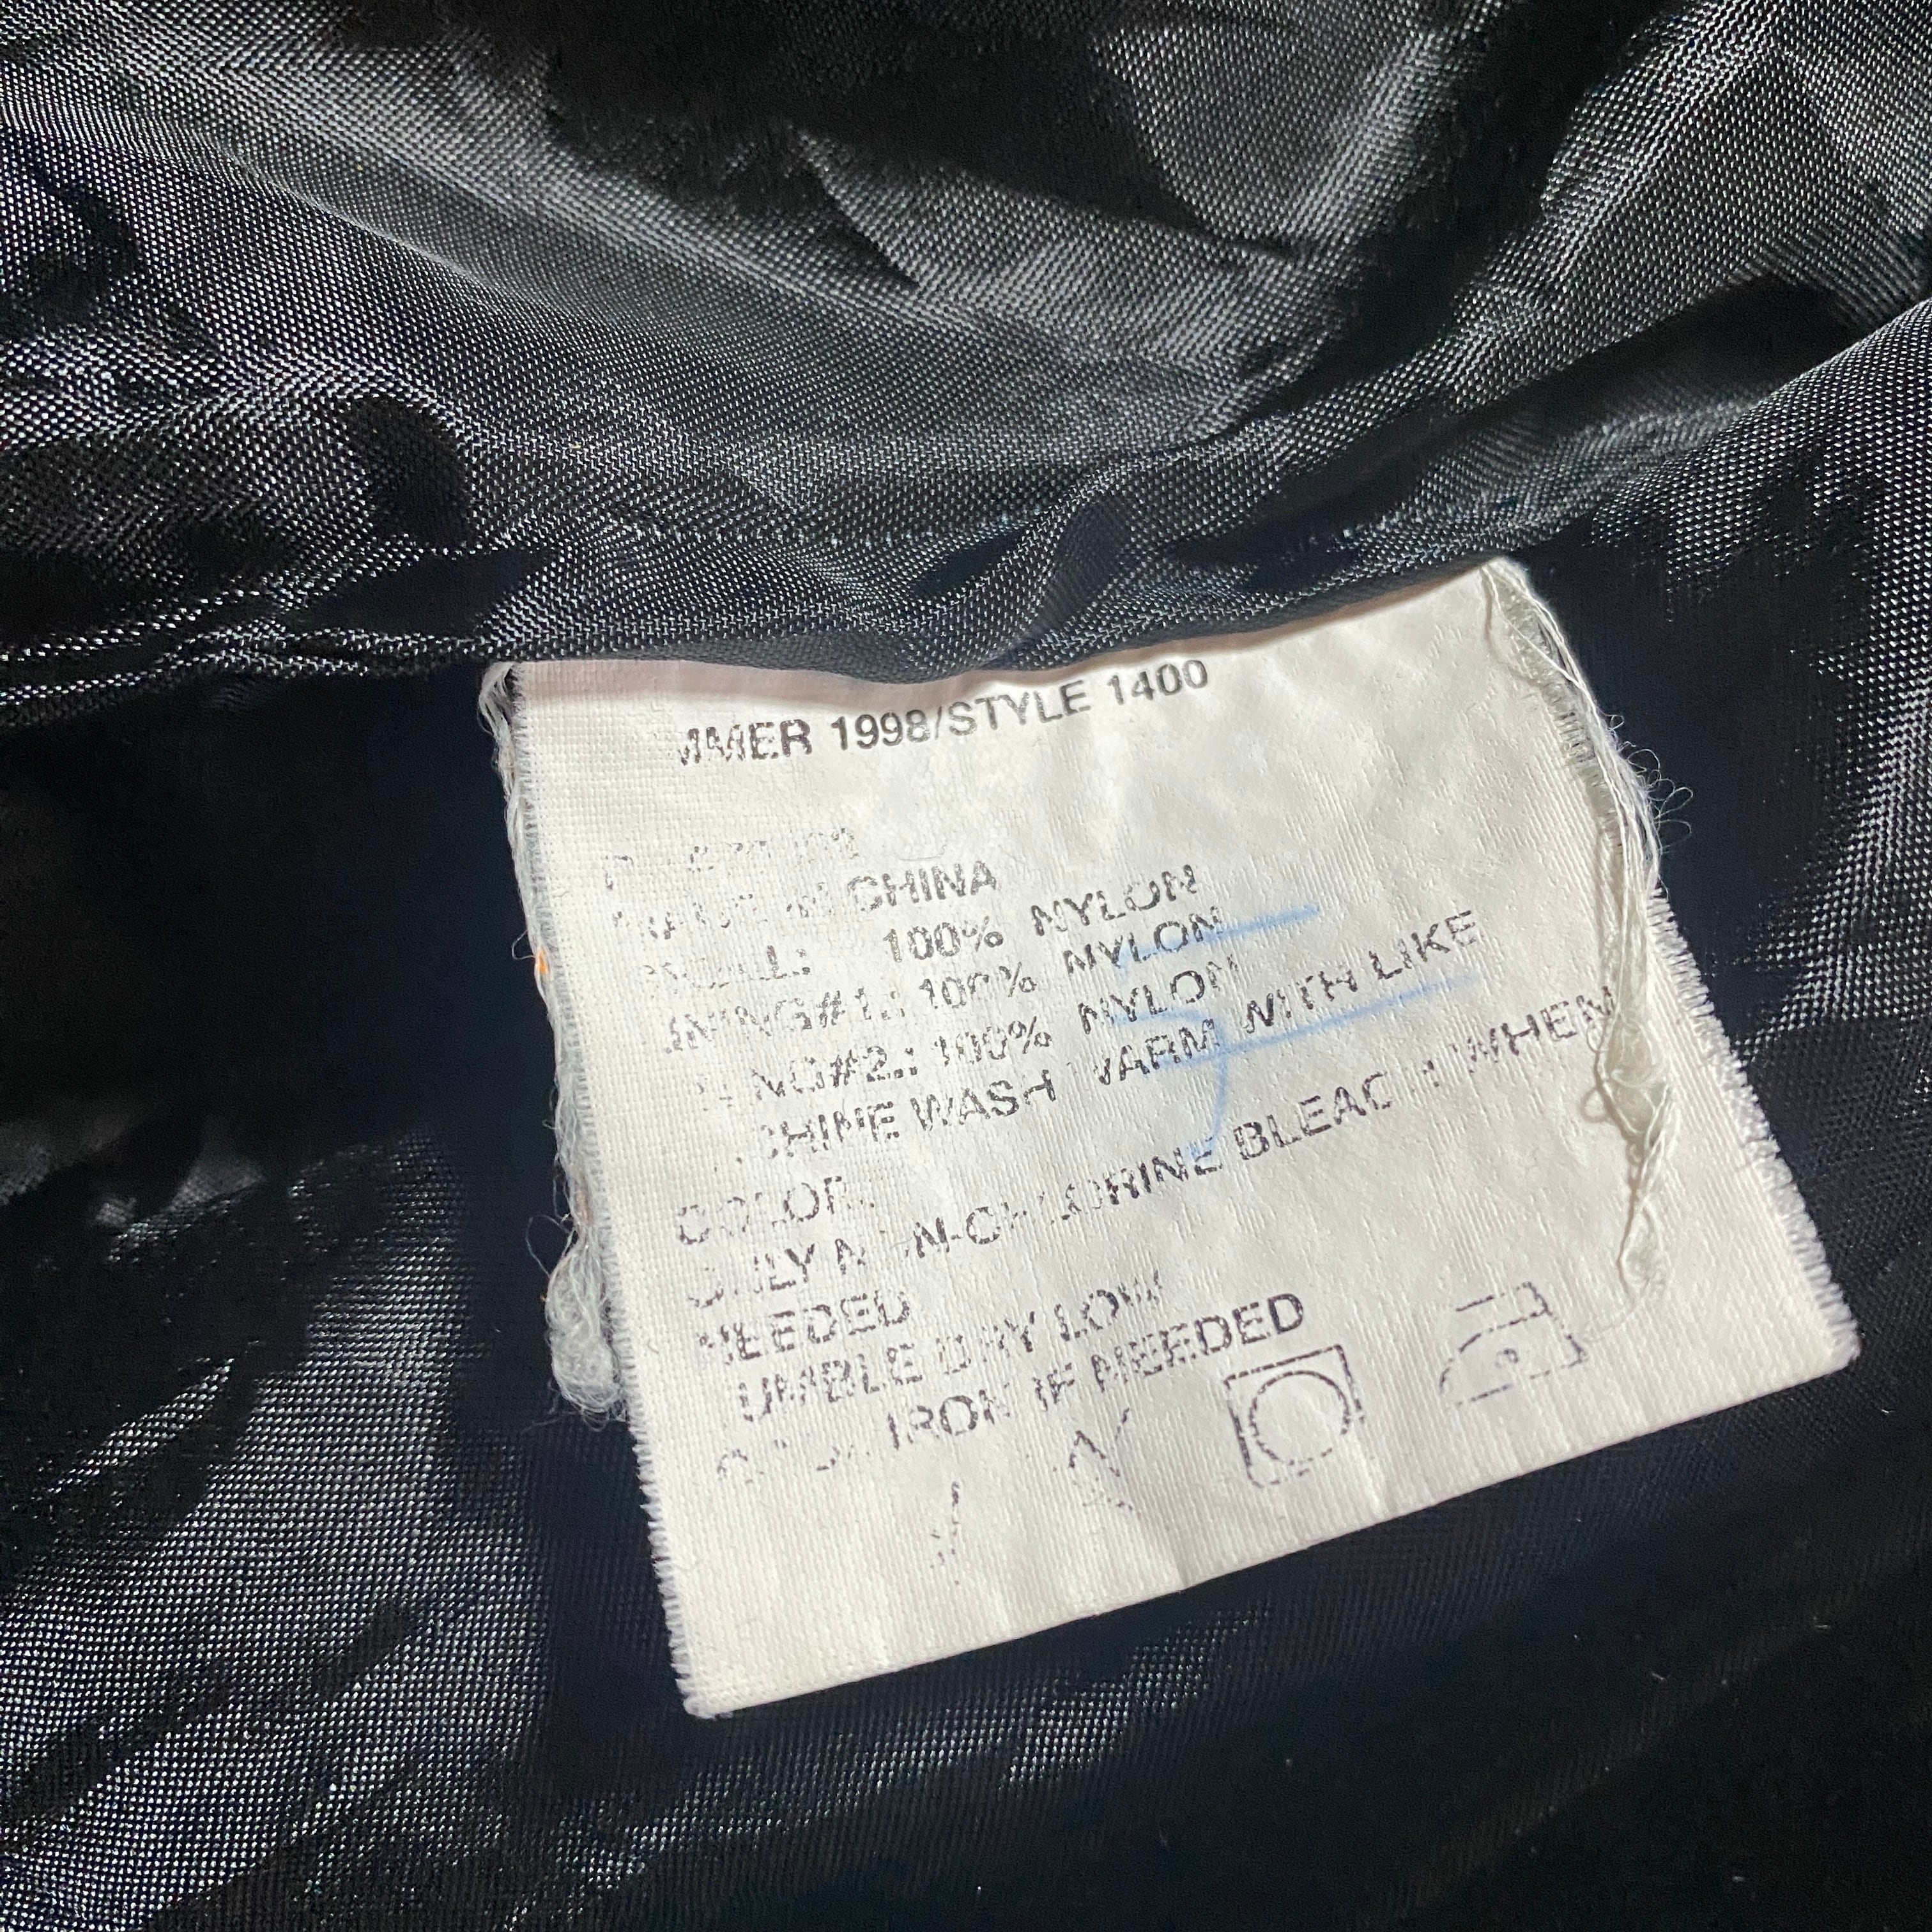 MMER 1998/STYLE 1400
CHINA
SHELL: 100% NYLON
LINING#1.: 100% NYLON
LINING#2.: 100% NYLON
MACHINE WASH WARM WITH LIKE
COLOR.
ONLY NON-CHLORINE BLEACH WHEN
NEEDED
TUMBLE DRY LOW
IRON IF NEEDED